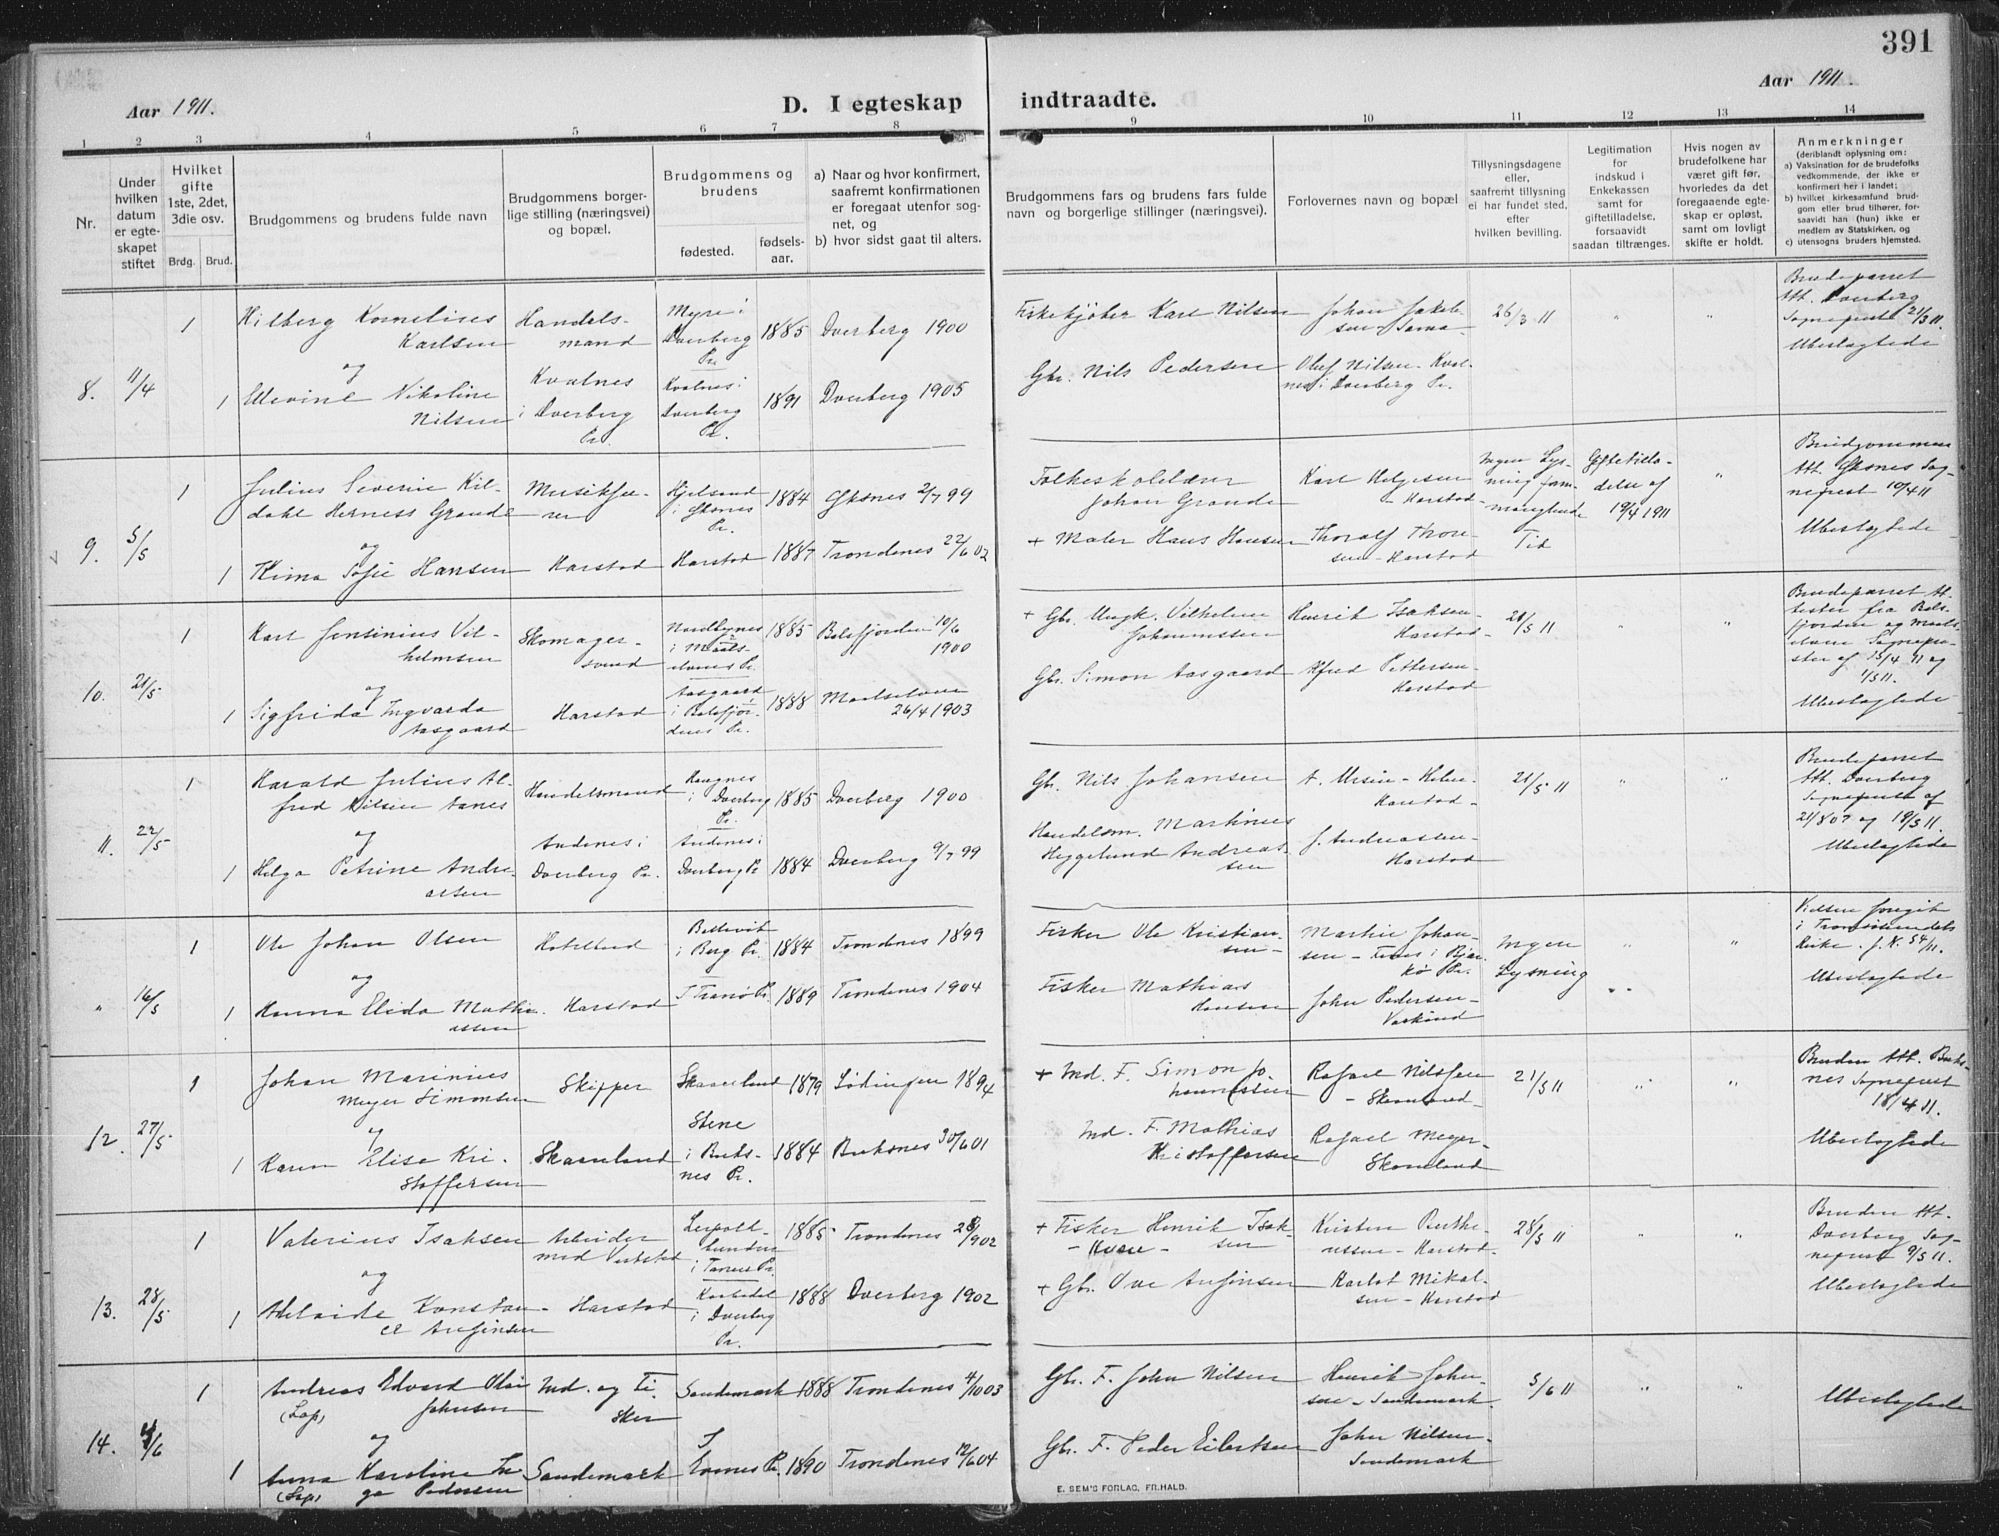 391
Aar 1911.
D. I egteskap indtraadte.
Aar 1911.
1 2 3 4 5 6 7 8 9 10 11 12 13 14
Nr.
Under hvilken datum er egteskapet stiftet
Hvilket gifte 1ste, 2det, 3die osv.
Brdg. Brud.
Brudgommens og brudens fulde navn
Brudgommens borgerlige stilling (næringsvei) og bopæl.
Brudgommens og brudens
fødested.
fødselsaar.
a) Naar og hvor konfirmert, saafremt konfirmationen er foregaat utenfor sognet, og
b) hvor sidst gaat til alters.
Brudgommens fars og brudens fars fulde navn og borgerlige stillinger (næringsvei).
Forlovernes navn og bopæl
Tillysningsdagene eller, saafremt tillysning ei har fundet sted, efter hvilken bevilling.
Legitimation for indskud i Enkekassen samt for giftetilladelse, forsaavidt saadan tiltrænges.
Hvis nogen av brudefolkene har været gift før, hvorledes da det foregaaende egteskap er opløst, samt om lovligt skifte er holdt.
Anmerkninger
(deriblandt oplysning om:
a) Vaksination for de brudefolks vedkommende, der ikke er konfirmert her i landet;
b) hvilket kirkesamfund brudgom eller brud tilhører, forsaavidt han (hun) ikke er medlem av Statskirken, og
c) utensogns bruders hjemsted.
8. 11/4
1 Hilberg Kornelius Karlsen
Handelsmand
Myre i Dverberg Pr.
1885 Dverberg 1900
Fiskekjøber Karl Nilsen
Johan Jakobsen
26/3 11
Brudeparret Att. Dverberg Sognepræst 21/3 11.
Ubeslegtede
og
1 Nikoline Nilsen
Kvalnes i Dverberg Pr.
Kvalnes i Dverberg Pr.
1891 Dverberg 1905
Gbr. Nils Pedersen
Oluf Nilsen Kvalnes i Dverberg Pr.
9. 5/5
1 Julius Severin Kildahl Herness Grande
Hjelsand i Øksnes Pr.
1884 Øksnes 2/7 99
Folkeskolelærer Johan Grande
Karl Helgesen - Harstad
Ingen Lysning
Tid
Giftetilladelse af 19/4 1911
Brudgommen Att. Øksnes Sognepræst 10/4 11
Ubeslegtede
og
1 Sofie Hansen
Harstad
Harstad
1887 Trondenes 22/6 02
+ Maler Hans Hansen
Thoralf Thoresen - Harstad
10. 21/5
1 Karl Jentinius Vilhelmsen
Skomagersvend
1885 Balsfjorden 10/6 1900
+ Gbr. Ungk. Vilhelm
Henrik Isaksen - Harstad
21/5 11
Ubeslegtede
og
1 Sigfrida Ingvarda Aasgaard
Harstad
Aasgaard i Balsfjordens Pr.
1888 Maalselven 26/4 1903
Gbr. Simon Aasgaard
Alfred Pettersen - Harstad
11. 22/5
1 Harald Julius Alfred Nilsen Aanes
Handelsmand
i Dverberg Pr.
1885 Dverberg 1900
Gbr. Nils Johansen
Harstad -
21/5 11
Brudeparret Att. Dverberg Sognepræst af
Ubeslegtede
og
1 Helga Petrine Andreassen
Andenes i Dverberg Pr.
Andenes i Dverberg Pr.
1884 Dverberg 9/7 99
Handelsm. Martinus Heggelund Andreassen
J. Andreassen - Harstad
" 16/5
1 Ole Johan Olsen
Botelvik i Berg Pr.
1884 Trondenes 1899
Fisker Ole Kristiansen -
Martin Johansen - i Bjarkø Pr.
Ingen Lysning
Vielsen foregik i
Ubeslegtede
og
1 Hanna Elida Mathiassen
Harstad
I Tranø Pr.
1889 Trondenes 1904
Fisker Mathias Hansen
John Pedersen -
12. 27/5
1 Johan Marinius Meyer Simonsen
Skipper
Skaanland
1879 Lødingen 1894
+ Ind. F. Simon Johannessen
Rafael Nilssen - Skaanland -
21/5 11
Bruden Att. Buksnes Sognepræst 18/4 11.
Ubeslegtede
og
1 Karen Elise Kristoffersen
Skaanland
Stene i Buksnes Pr.
1884 Buksnes 30/6 01
Ind. F. Mathias Kristoffersen
Rafael Meyer - Skaanland
13. 28/5
1 Valerius Isaksen
Arbeider
1885 Trondenes
+ Fisker Henrik Isaksen
Kristen Berthe
28/5 11
Bruden Att. Dverberg Sognepræst 9/5 11.
Ubeslegtede
og
1 Adelaide Konstance Anfinsen
Harstad
i Dverberg Pr.
1888 Dverberg 1902
+ Gbr. Ove Anfinsen
Karlot Mikalsen - Harstad
14.
1 Andreas Edvard Johnsen (Lap)
Ind. og Fisker
Sandemark
1888 Trondenes 4/10 03
Gbr. F. John Nilsen
Henrik Johnsen - Sandemark
5/6 11
Ubeslegtede
og
1 Anna Karoline Inga Pedersen (Lap)
Sandemark
1890 Trondenes 12/6 04
Gbr. F. Peder Eilertsen
John Nilsen - Sandemark
E. SEM'S FORLAG, FR.HALD.